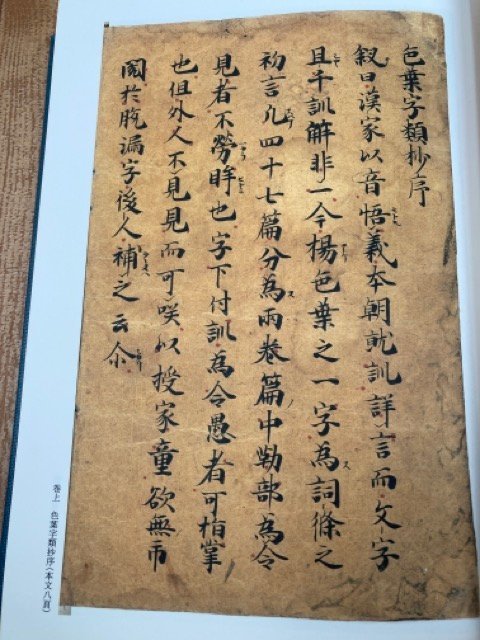 色葉字類抄序
叙曰漢家以音悟義本朝就訓詳言而文字
且千訓解非一今楊色葉之一字為詞條之
初言凡四十七篇分為兩卷篇中勒部為令
見者不勞眸也字下付訓為令愚者可指掌
也但外人不見見而可咲以授家童欲無市
閲於脱漏字後人補之云尒
巻上 色葉字類抄序(本文八頁)